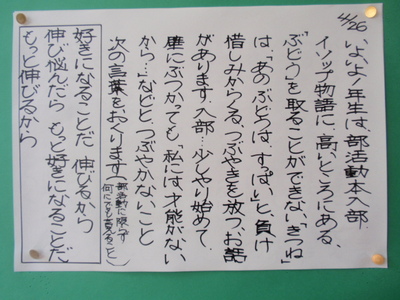 4/26
いよいよ1年生は、部活動本入部.
イソップ物語に、高いところにある、
ぶどうを取ることができない「きつね」
は、「あのぶどうは、すっぱい」と、負け
惜しみからくる、つぶやきを放つ、お話
があります。入部…少しやり始めて、
壁にぶつかっても「私には才能がない
から…」などと、つぶやかないこと
次の言葉をおくります(部活動に限らず
何にでも言えること)
好きになることだ 伸びるから
伸び悩んだら もっと好きになることだ
もっと伸びるから